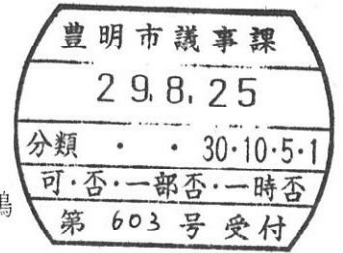 豊明市議事課
29.8.25
分類 ・ ・ 30・10・5・1
可・否・一部否・一時否
第 603 号 受付